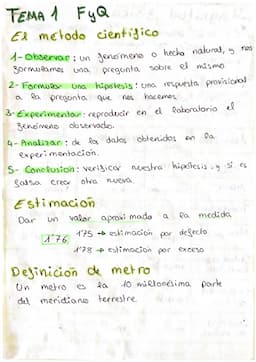 TEMA 1 FyQ
El metodo cientifico
1- Observar: un fenomeno o hecho natural, y nos
formulamos una pregunta sobre el mismo.
2- Formular una hipotesis: una respuesta provisional
a la pregunta que nos hacemos.
3- Experimentar: reproducir en el laboratorio el
fenomeno observado.
4- Analizar: de los datos obtenidos en la
experimentacion.
5- Conclusion: verificar nuestra hipotesis y si es
falsa crear otra nueva.
Estimacion
Dar un valor aproximado a la medida
1'76 1'75 → estimacion por defecto
1'78 → estimacion por exceso
Definicion de metro
Un metro es la 10 millonesima parte
del meridiano terrestre.